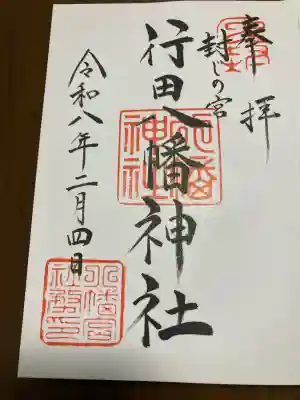 奉拝
封じの宮
行田八幡神社
八幡神社
令和八年二月四日